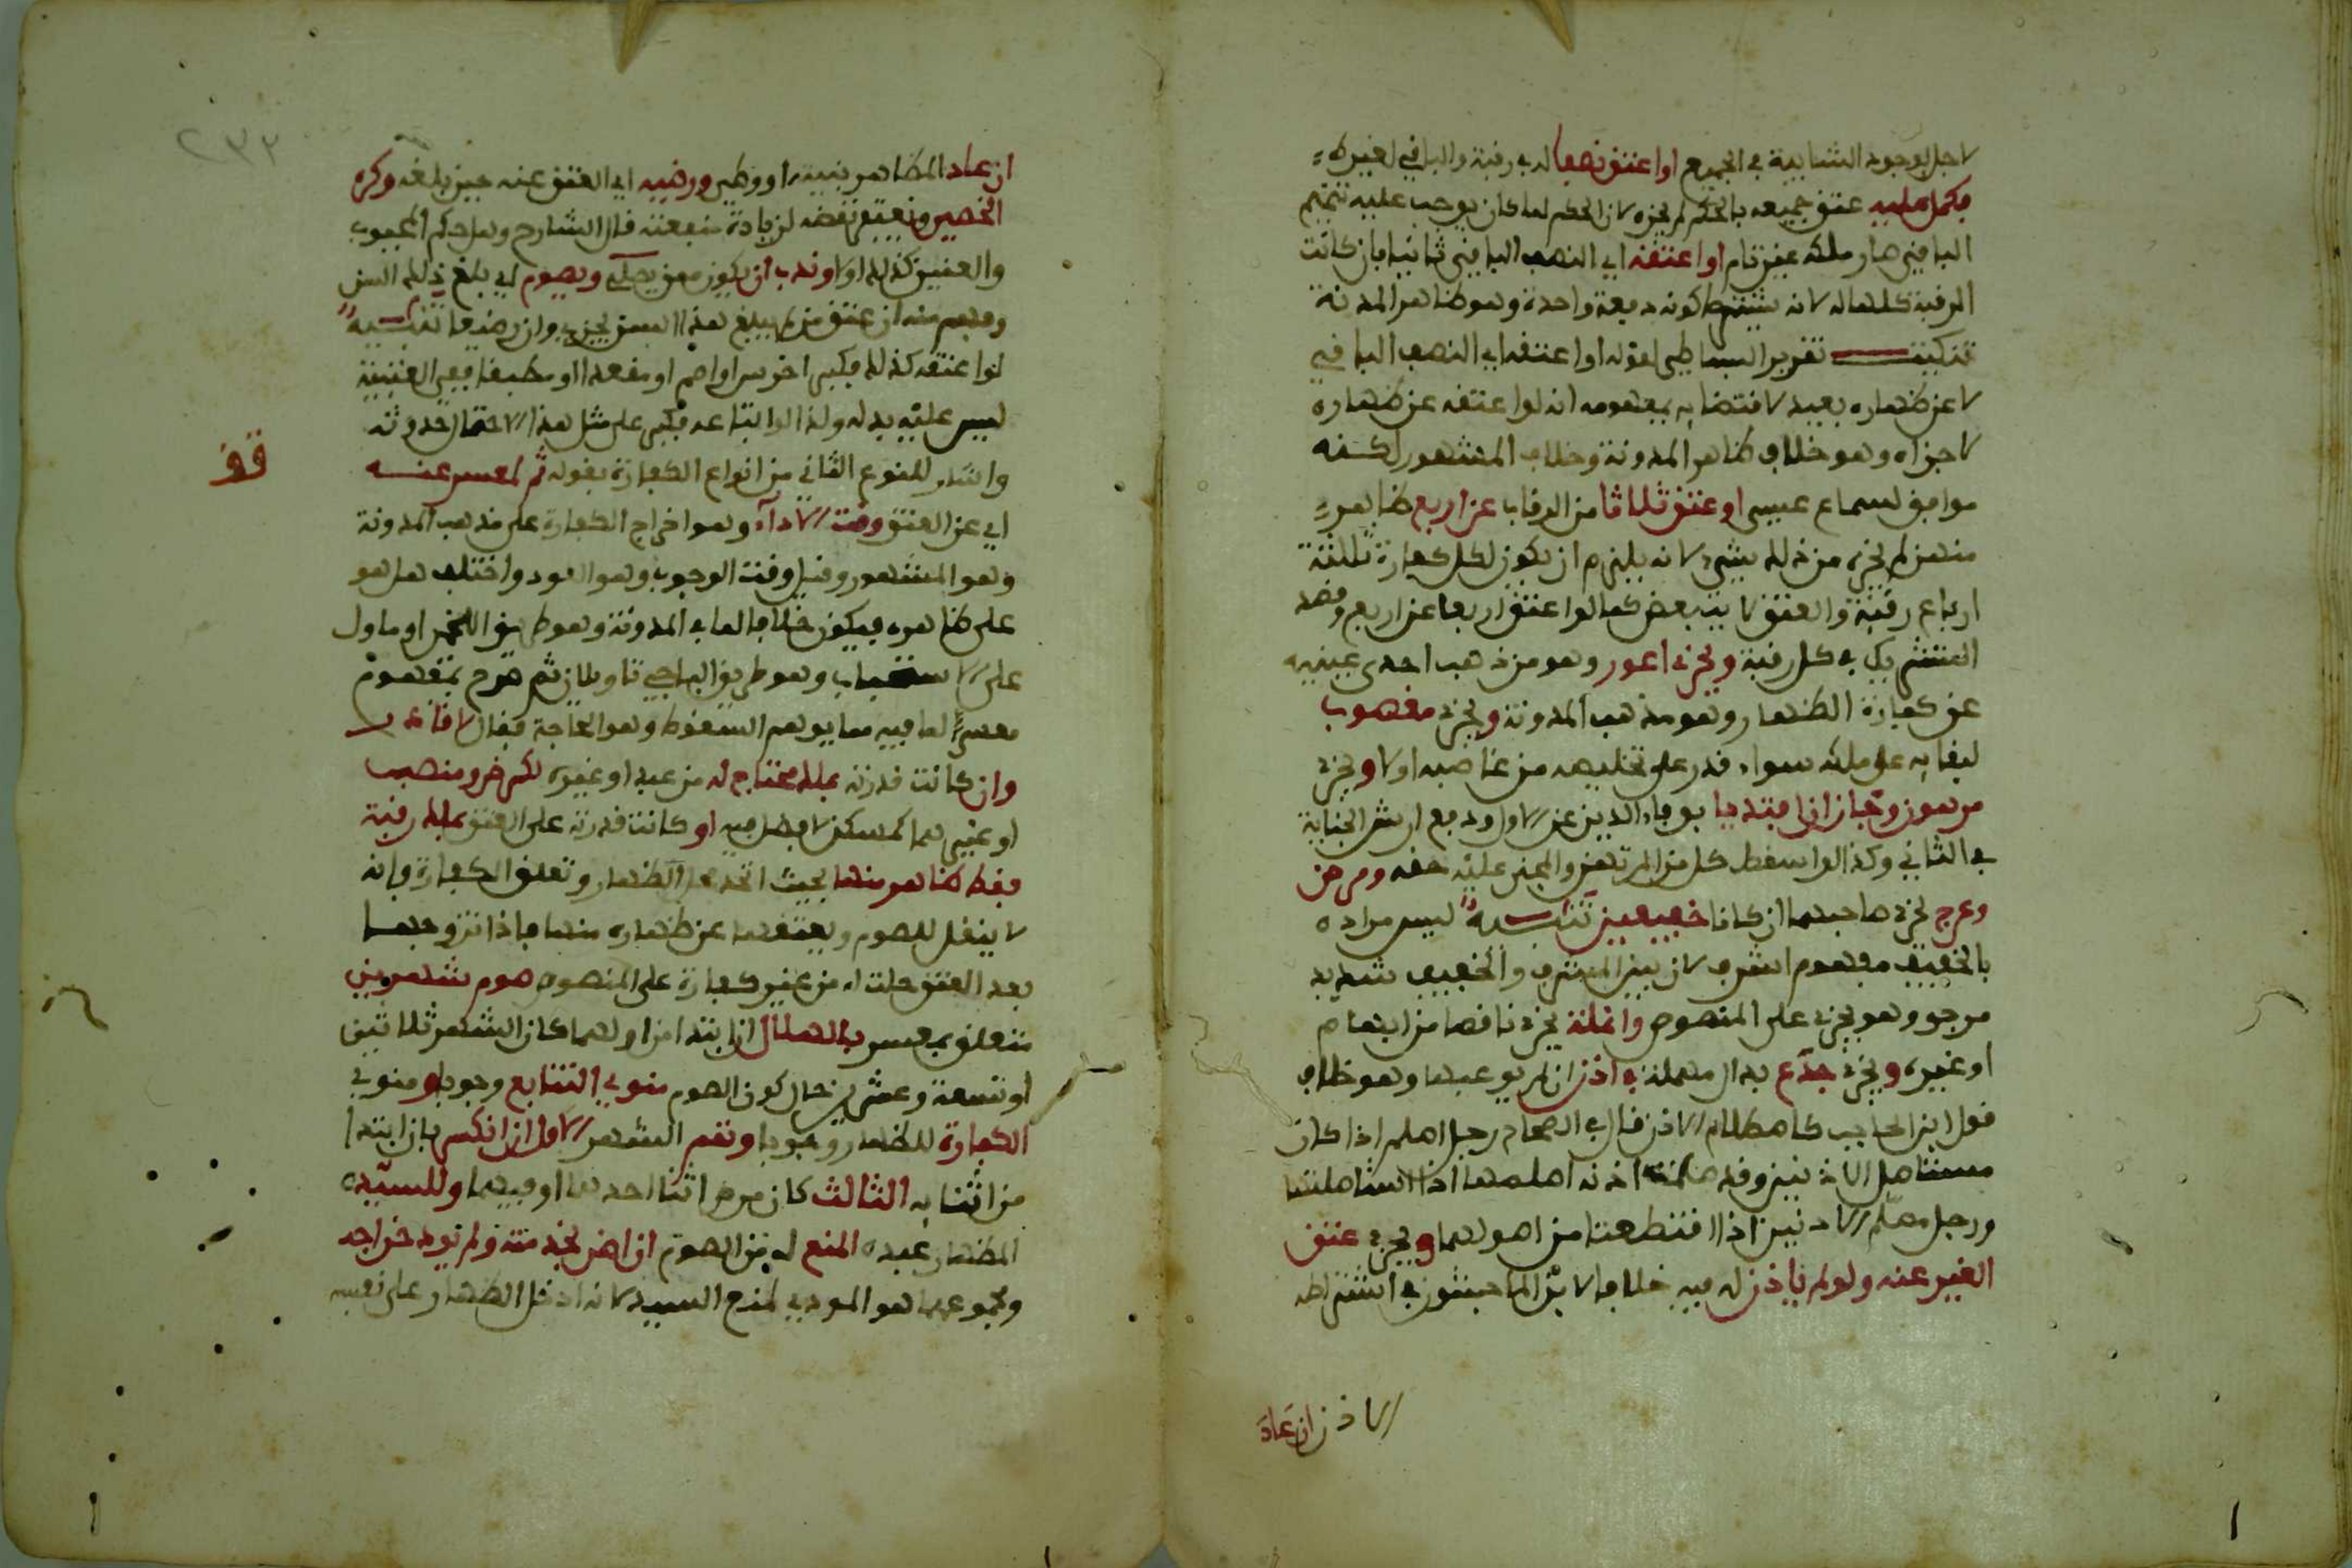 لاجل لوجود الشايبة في الجميع او اعتق نصفا له في رقبة والباقي لغيره
فكمل عليه عتق جميعه بالحكم لم يجزه لان الحكم لما كان يوجب عليه تتميم
الباقي صار ملكه غير تام او اعتقه اي النصف الباقي ثانيا بان كانت
الرقبة كلها له لانه يشترط كونه دفعة واحدة وهو ظاهر المدونة
تنكيت تقرير البساطي لقوله او اعتقه اي النصف الباقي
لا عن ظهاره بعيد لاقتضايه بمفهومه انه لو اعتقه عن ظهاره
لاجزاه وهو خلاف ظاهر المدونة وخلاف المشهور لكنه
موافق لسماع عيسى او عتق ثلاثا من الرقاب عن اربع ظاهر
منهن لم يجزه من ذلك شيء لانه يلزم ان يكون لكل كفارة ثلاثة
ارباع رقبة والعتق لا يتبعض كما لو اعتق اربعا عن اربع وقصد
التشريك في كل رقبة ويجزي اعور وهو من ذهب احدى عينيه
عن كفارة الظهار وهو مذهب المدونة ويجزي مغصوب
لبقايه على ملكه سواء قدر على تخليصه من غاصبه او لا ويجزي
مرهون وجان ان افتديا بوفاء الدين عن الاول ودفع ارش الجناية
في الثاني وكذا لو اسقط كل من المرتهن والمجني عليه حقه ومرض
وعرج يجزي صاحبهما ان كانا خفيفين تنبيه ليس مراده
بالخفيف مفهوم اشرف لان بين المشرف والخفيف شديد
مرجو وهو يجزي على المنصوص وانملة يجزي ناقصها من ابهام
او غيره ويجزي جدع بدال مهملة في اذن ان لم يوعبها وهو خلاف
قول ابن الحاجب كاصطلام الاذن قال في الصحاح رجل اصلم اذا كان
مستاصل الاذنين وقد صلمت اذنه اصلمها اذا استاصلتها
ورجل مصلم الاذنين اذا اقتطعتا من اصولهما ويجزي عتق
الغير عنه ولو لم ياذن له فيه خلافا لابن الماجشون في اشتراطه
الاذن ان عاد
٢٣٢
ان عاد المظاهر بنيته او وطئ ورضيه اي العتق عنه حين بلغه وكره
الخصي ويغتفر نقصه لزيادة منفعته قال الشارح وهل حكم المجبوب
والعنين كذلك او لا وندب ان يكون ممن يصلي ويصوم اي بلغ ذلك السن
وفهم منه ان عتق من لم يبلغ هذا السن يجزي وان رضيعا تنبيه
لو اعتقه كذلك فكبر اخرس او اصم او مقعدا او مطبقا ففي العتبية
ليس عليه بدله ولذا لو ابتاعه فكبر على مثل هذا لاحتمال حدوثه
قف
واشار للنوع الثاني من انواع الكفارة بقوله ثم لمعسر عنه
اي عن العتق وقت الاداء وهو اخراج الكفارة على مذهب المدونة
وهو المشهور وقيل وقت الوجوب وهو العود واختلف هل هو
على ظاهره فيكون خلافا لما في المدونة وهو طريق اللخمي او ماول
على الاستحباب وهو طريق الباجي تاويلان ثم صرح بمفهوم
معسر لما فيه مما يوهم السقوط وهو الحاجة فقال لا قادر
وان كانت قدرته بملك محتاج له من عبد او غيره لكمرض ومنصب
او غيرهما كمسكن لا فضل فيه او كانت قدرته على العتق بملك رقبة
فقط ظاهر منها بحيث اتحد محل الظهار وتعلق الكفارة فانه
لا ينقل للصوم ويعتقها عن ظهاره منها فاذا تزوجها
بعد العتق حلت له من غير كفارة على المنصوص صوم شهرين
متعلق بمعسر بالهلال ان ابتدا من اولهما كان الشهر ثلاثين
او تسعة وعشرين حال كون الصوم منوي التتابع وجوبا ومنوي
الكفارة للظهار وجوبا وتمم الشهر الاول ان انكسر بان ابتدا
من اثنايه الثالث كان مرض اثنا احدهما او فيهما وللسيد
المظاهر عبده المنع له من الصوم ان اضر بخدمته ولم يود خراجه
ومجموعهما هو المودي لمنع السيد لانه ادخل الظهار على نفسه